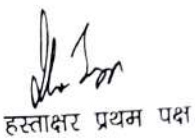 हस्ताक्षर प्रथम पक्ष